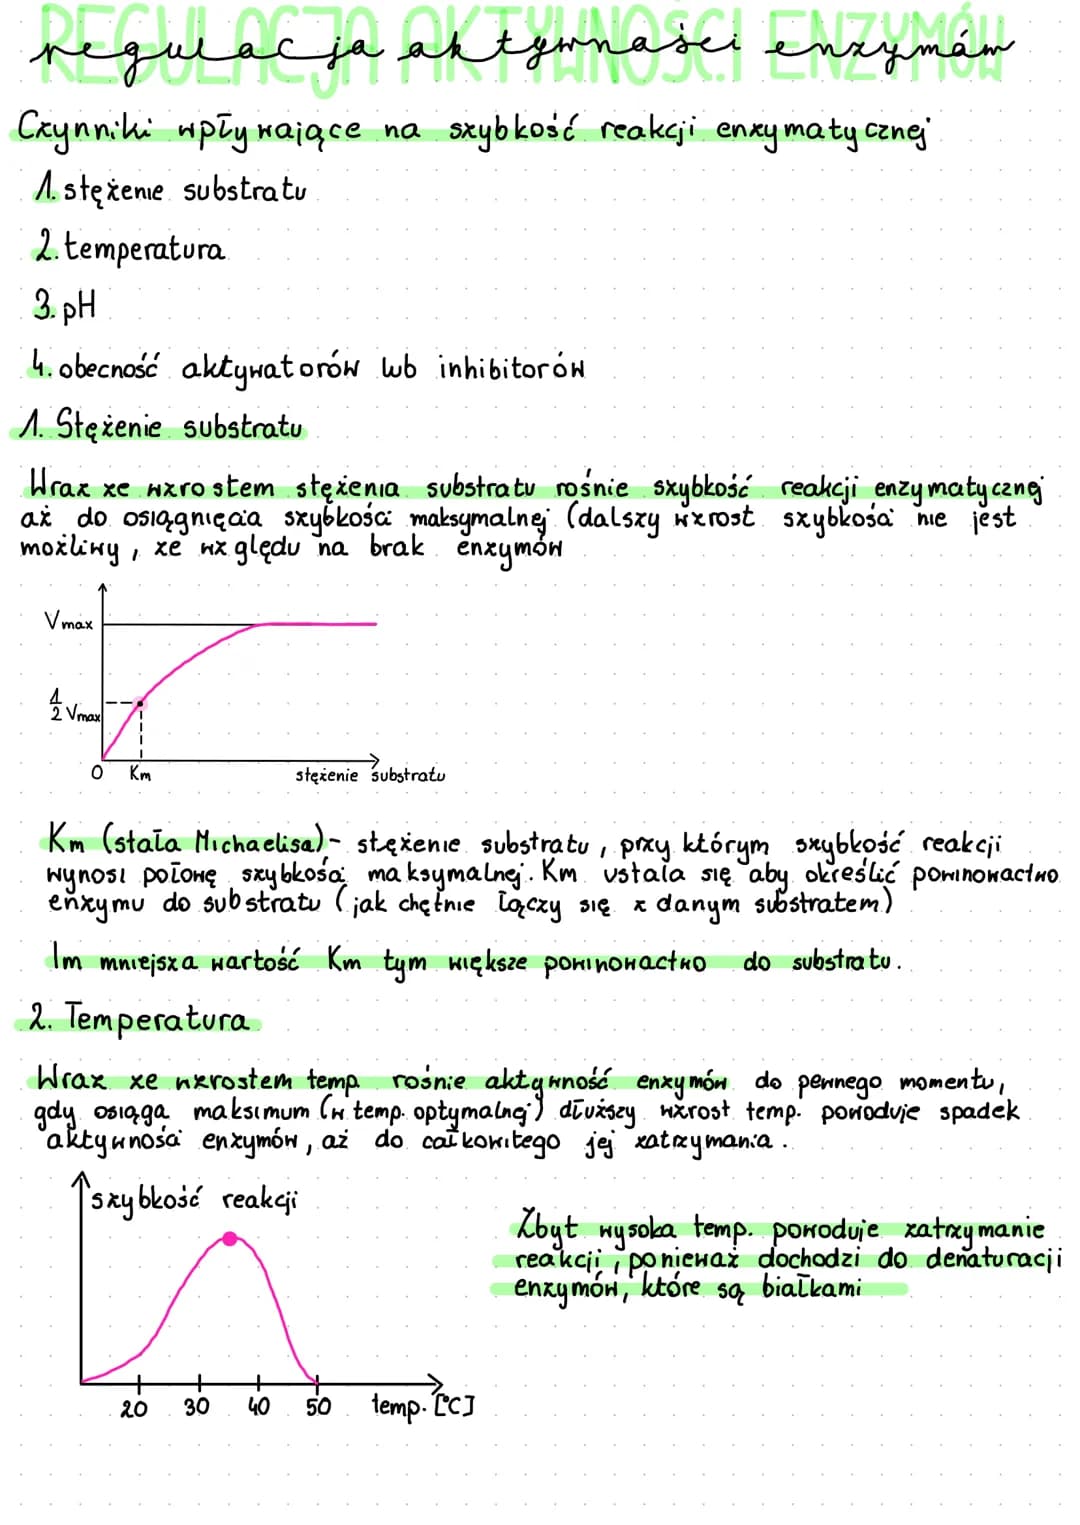 REGULACJA AKTYWNOŚCI ENZYMÓW
regulacja aktywności enzymów
Czynniki wpływające na szybkość reakcji enzymatycznej
1. stężenie substratu
2. temperatura
3. pH
4. obecność aktywatorów lub inhibitorów
1. Stężenie substratu
Wraz ze wzrostem stężenia substratu rośnie szybkość reakcji enzymatycznej
aż do osiągnięcia szybkości maksymalnej (dalszy wzrost szybkości nie jest
możliwy, ze względu na brak enzymów
Vmax
1/2 Vmax
0 Km stężenie substratu
Km (stała Michaelisa) - stężenie substratu, przy którym szybkość reakcji
wynosi połowę szybkości maksymalnej. Km ustala się aby określić powinowactwo
enzymu do substratu (jak chętnie łączy się z danym substratem)
Im mniejsza wartość Km tym większe powinowactwo do substratu.
2. Temperatura
Wraz ze wzrostem temp. rośnie aktywność enzymów do pewnego momentu,
gdy osiąga maksimum (w temp. optymalnej) dłuższy wzrost temp. powoduje spadek
aktywności enzymów, aż do całkowitego jej zatrzymania.
szybkość reakcji
Zbyt wysoka temp. powoduje zatrzymanie
reakcji, ponieważ dochodzi do denaturacji
enzymów, które są białkami
20 30 40 50 temp. [°C]